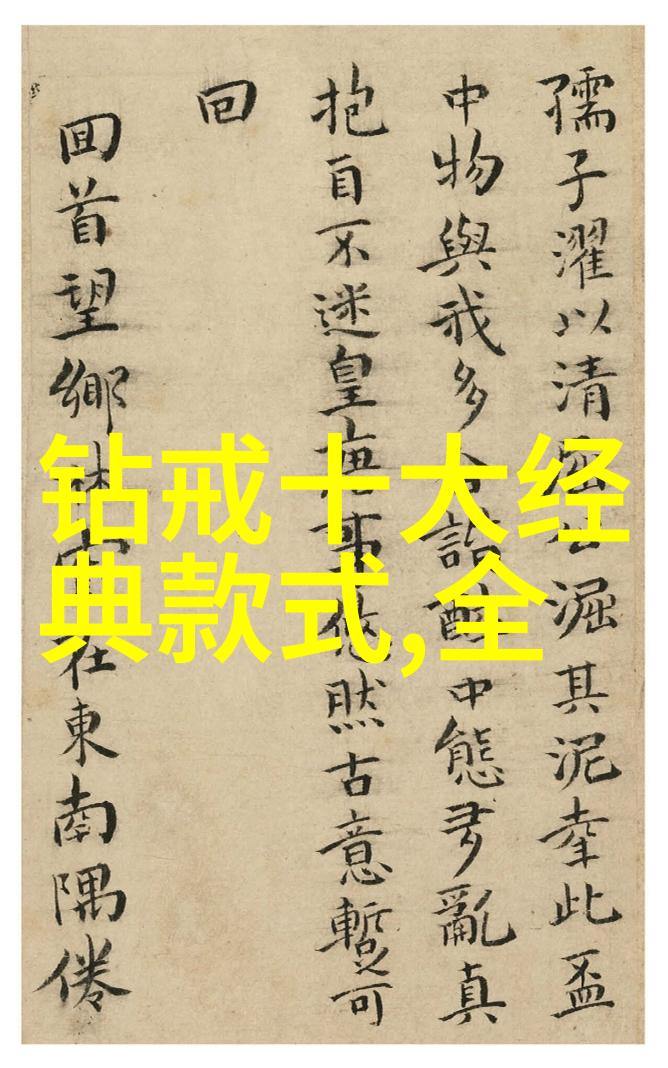 钻戒十大经
典款式,全
孺子濯以清淈其泥幸此盃
中物與我多詣醉中態多亂真
抱自不迷皇唐事悠然古意暫可
回
囬首望鄉在東南隅倦